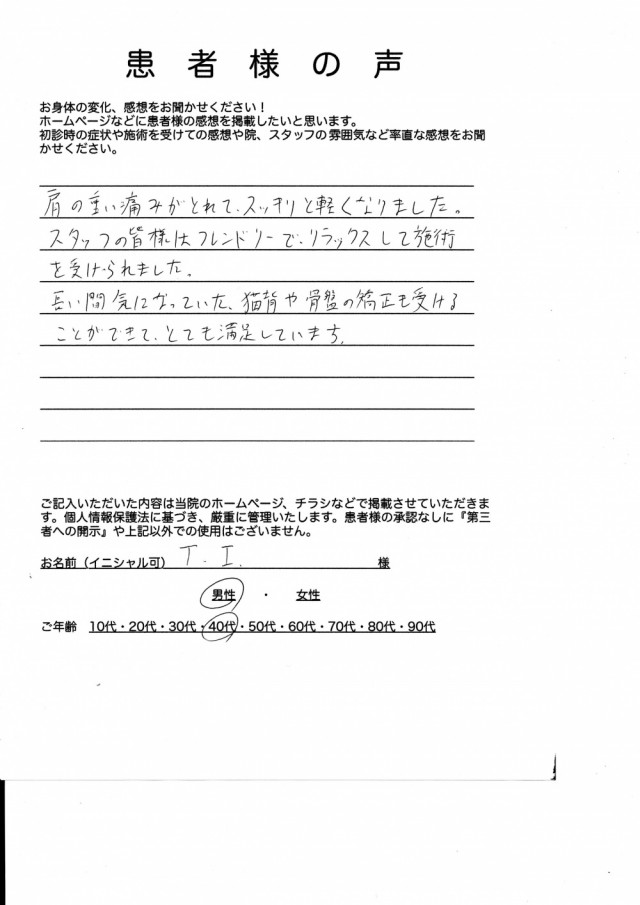 患者様の声
お身体の変化、感想をお聞かせください！
ホームページなどに患者様の感想を掲載したいと思います。
初診時の症状や施術を受けての感想や院、スタッフの雰囲気など率直な感想をお聞
かせください。
肩の重い痛みがとれて、スッキリと軽くなりました。
スタッフの皆様はフレンドリーで、リラックスして施術
を受けられました。
長い間気になっていた、猫背や骨盤の矯正も受ける
ことができて、とても満足しています。
ご記入いただいた内容は当院のホームページ、チラシなどで掲載させていただきま
す。個人情報保護法に基づき、厳重に管理いたします。患者様の承認なしに『第三
者への開示』や上記以外での使用はございません。
お名前（イニシャル可） T. I. 様
男性 ・ 女性
ご年齢 10代・20代・30代・40代・50代・60代・70代・80代・90代